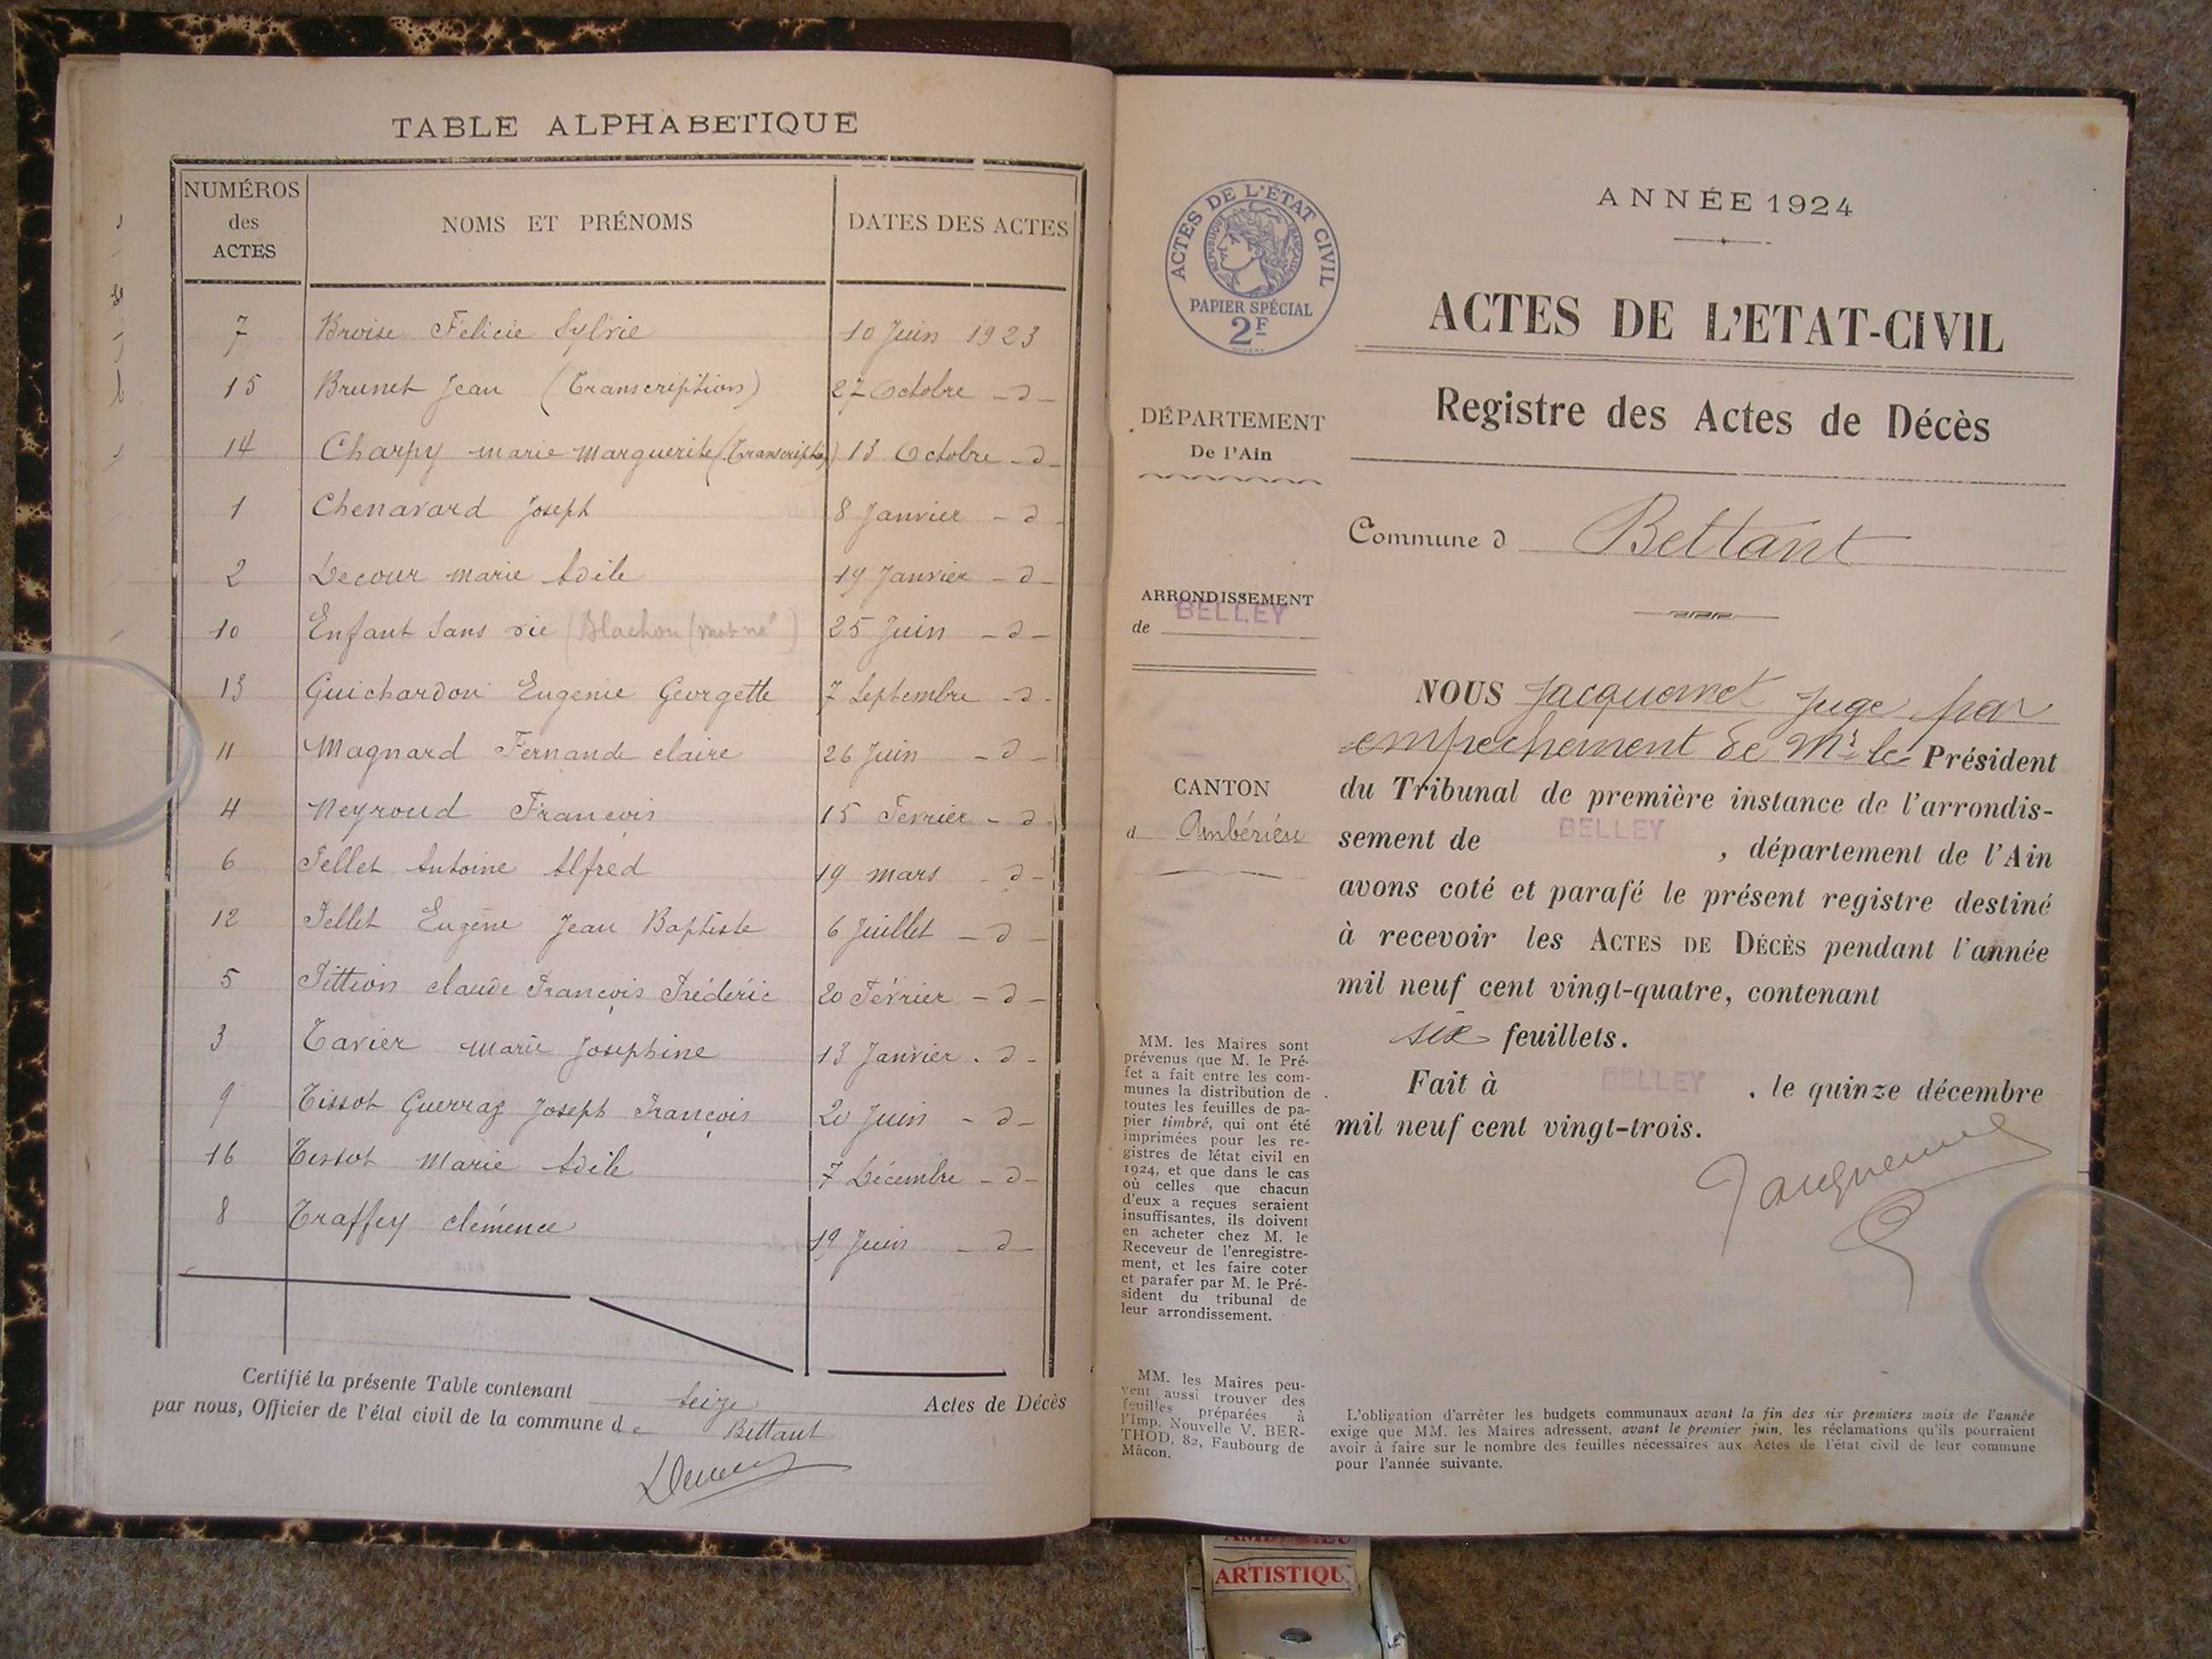 TABLE ALPHABETIQUE
NUMÉROS des ACTES
NOMS ET PRÉNOMS
DATES DES ACTES
7 Broise Felicie Sylvie 10 Juin 1923
15 Brunet Jean (Transcription) 27 Octobre - d -
14 Charpy marie Marguerite (Transcription) 13 Octobre - d -
1 Chenavard Joseph 8 Janvier - d -
2 Decour marie Adèle 19 Janvier - d -
10 Enfant sans vie (Blachon (mort né) 25 Juin - d -
13 Guichardon Eugenie Georgette 7 Septembre - d -
11 Magnard Fernande claire 26 Juin - d -
4 Neyroud François 15 Fevrier - d -
6 Pellet Antoine Alfred 19 mars - d -
12 Pellet Eugène Jean Baptiste 6 Juillet - d -
5 Pittion claude François Frédéric 20 Février - d -
3 Tavier marie Josephine 13 Janvier - d -
9 Tissot Guerraz Joseph François 20 Juin - d -
16 Tissot Marie Adèle 7 Décembre - d -
8 Traffey clémence 19 Juin - d -
Certifié la présente Table contenant seize Actes de Décès
par nous, Officier de l'état civil de la commune de Bettant
ACTES DE L'ÉTAT CIVIL
RÉPUBLIQUE FRANÇAISE
PAPIER SPÉCIAL
2F
DÉPARTEMENT
De l'Ain
ARRONDISSEMENT
de BELLEY
CANTON
d Ambérieu
MM. les Maires sont
prévenus que M. le Pré-
fet a fait entre les com-
munes la distribution de
toutes les feuilles de pa-
pier timbré, qui ont été
imprimées pour les re-
gistres de létat civil en
1924, et que dans le cas
où celles que chacun
d'eux a reçues seraient
insuffisantes, ils doivent
en acheter chez M. le
Receveur de l'enregistre-
ment, et les faire coter
et parafer par M. le Pré-
sident du tribunal de
leur arrondissement.
MM. les Maires peu-
vent aussi trouver des
feuilles préparées à
l'Imp. Nouvelle V. BER-
THOD, 82, Faubourg de
Mâcon.
ANNÉE 1924
ACTES DE L'ETAT-CIVIL
Registre des Actes de Décès
Commune d Bettant
NOUS Jacquemet Juge par
empechement de Mr le Président
du Tribunal de première instance de l'arrondis-
sement de BELLEY, département de l'Ain
avons coté et parafé le présent registre destiné
à recevoir les ACTES DE DÉCÈS pendant l'année
mil neuf cent vingt-quatre, contenant
six feuillets.
Fait à BELLEY, le quinze décembre
mil neuf cent vingt-trois.
Jacquemet
L'obligation d'arrêter les budgets communaux avant la fin des six premiers mois de l'année
exige que MM. les Maires adressent, avant le premier juin, les réclamations qu'ils pourraient
avoir à faire sur le nombre des feuilles nécessaires aux Actes de l'état civil de leur commune
pour l'année suivante.
ARTISTIQU